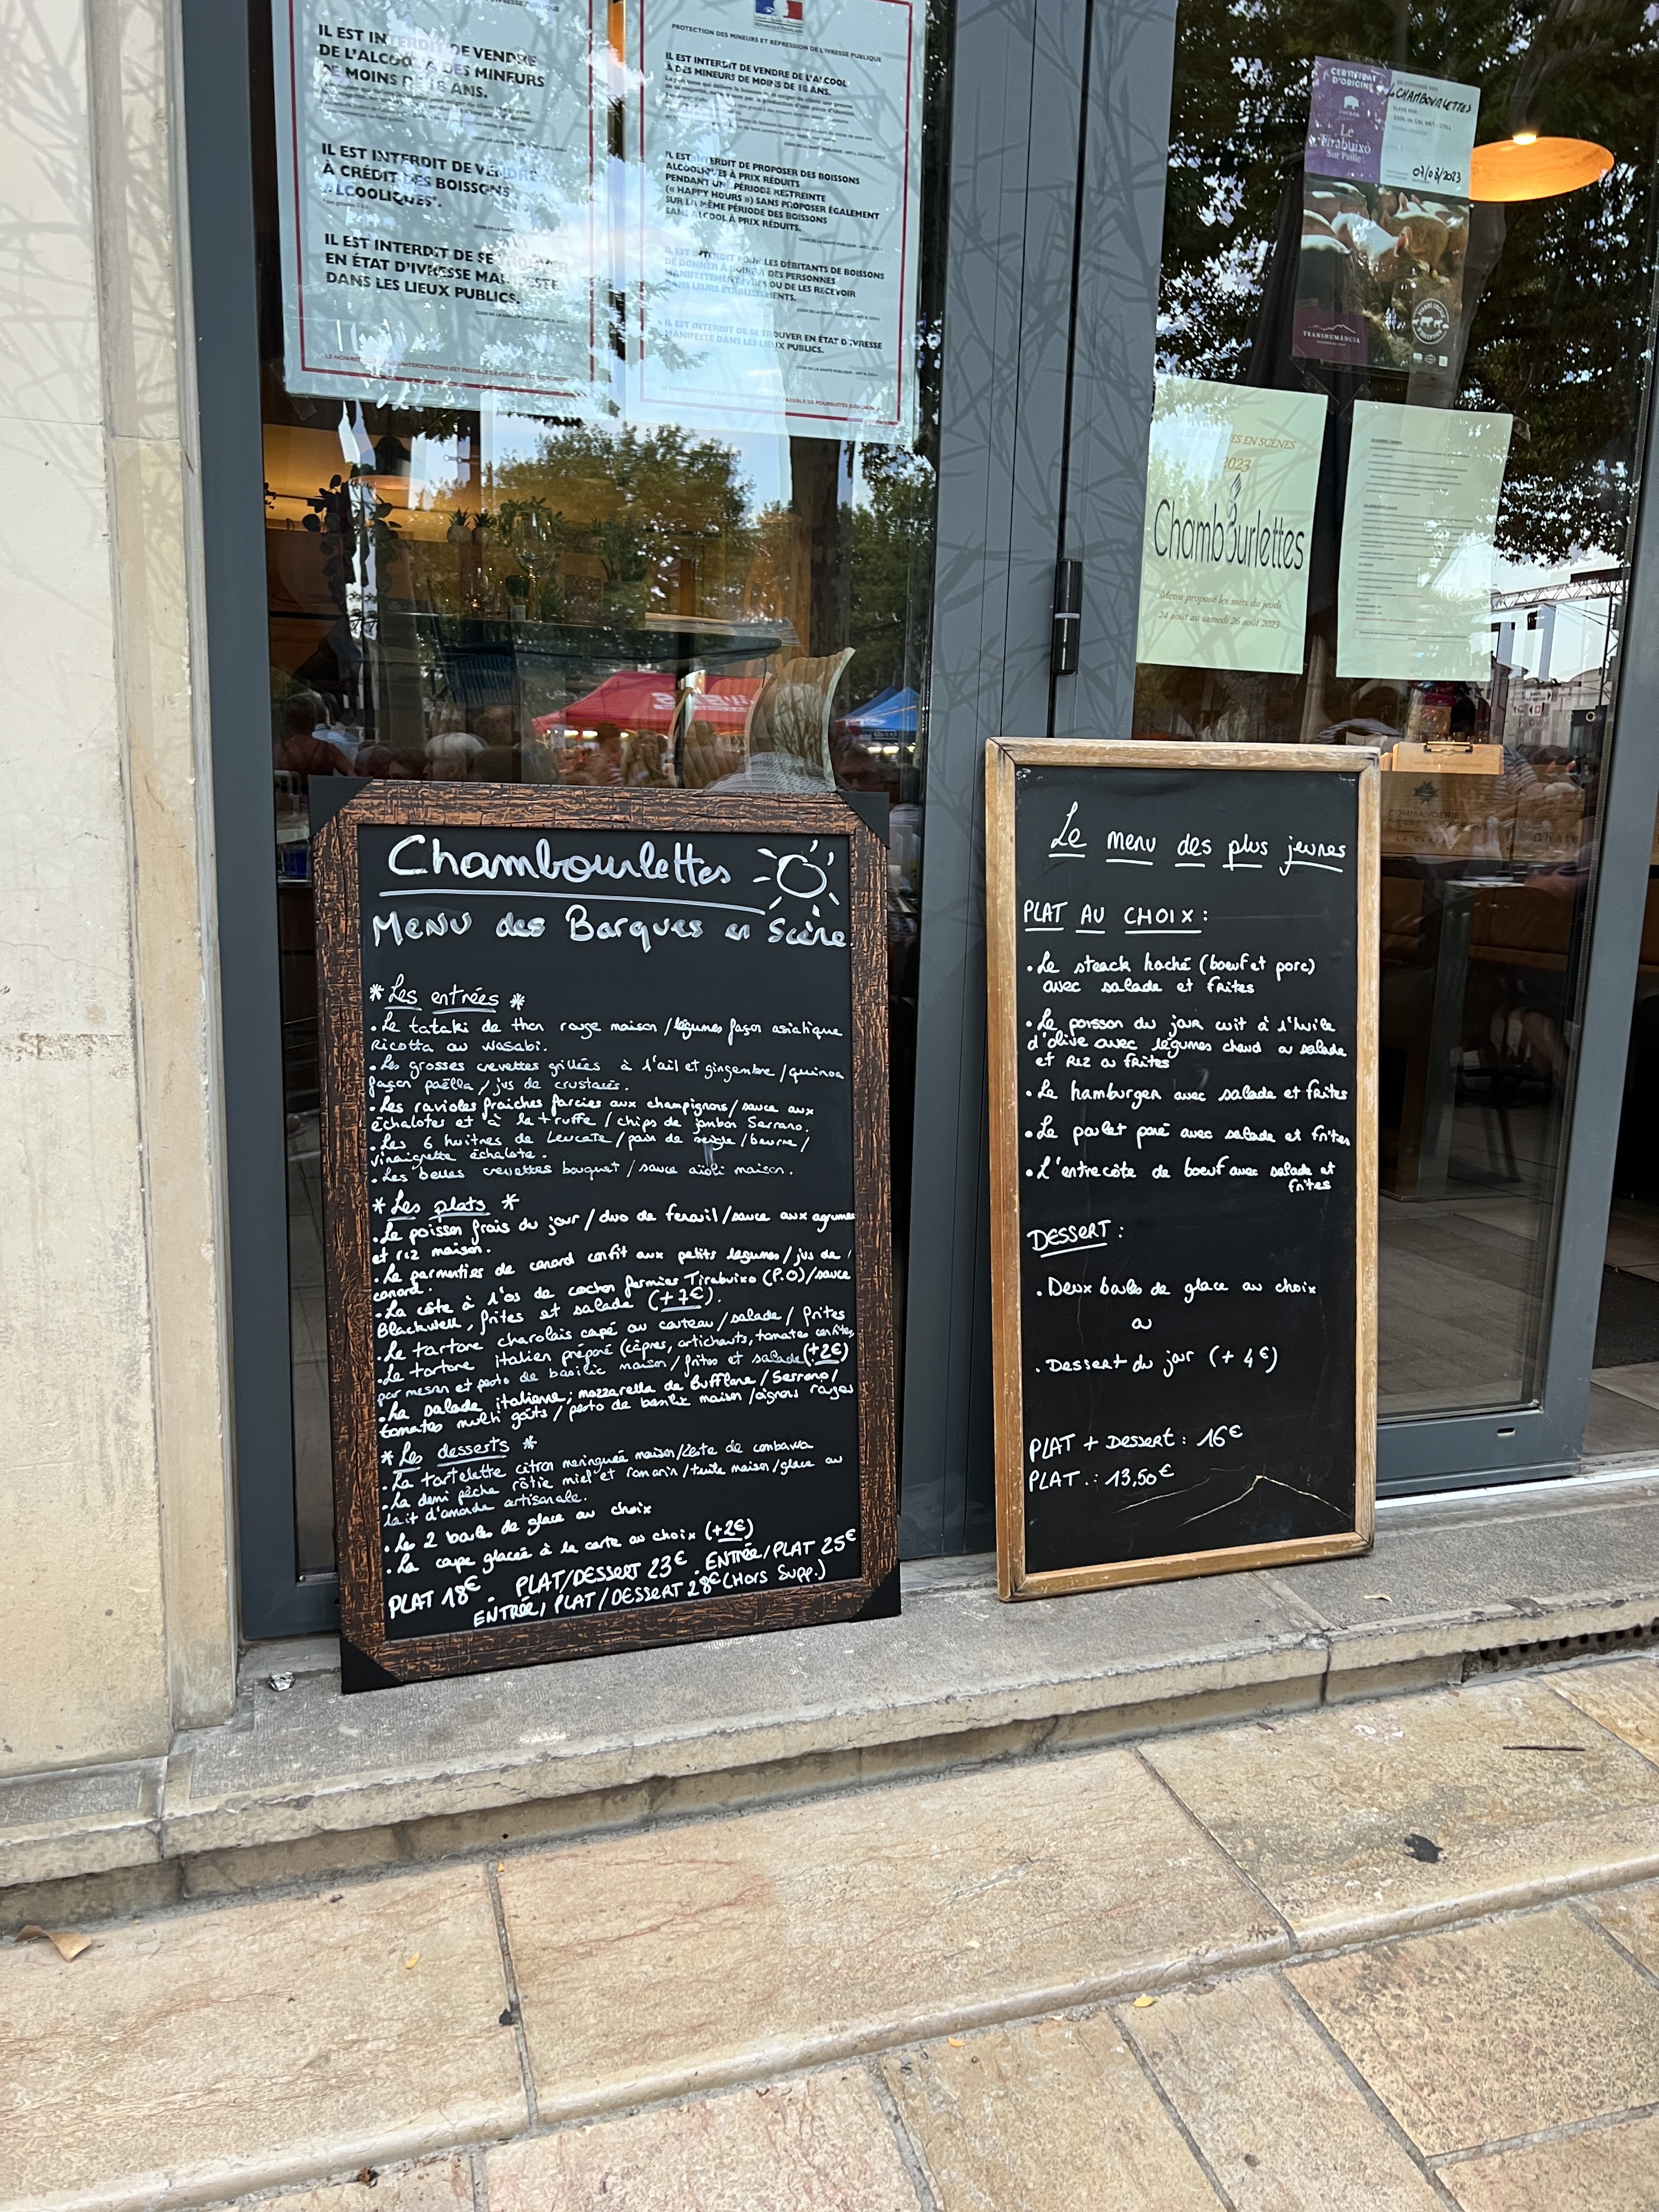 IL EST INTERDIT DE VENDRE
DE L'ALCOOL À DES MINEURS
DE MOINS DE 18 ANS.
IL EST INTERDIT DE VENDRE
À CRÉDIT DES BOISSONS
ALCOOLIQUES*.
IL EST INTERDIT DE SE TROUVER
EN ÉTAT D'IVRESSE MANIFESTE
DANS LES LIEUX PUBLICS.
PROTECTION DES MINEURS ET RÉPRESSION DE L'IVRESSE PUBLIQUE
IL EST INTERDIT DE VENDRE DE L'ALCOOL
À DES MINEURS DE MOINS DE 18 ANS.
IL EST INTERDIT DE PROPOSER DES BOISSONS
ALCOOLIQUES À PRIX RÉDUITS
PENDANT UNE PÉRIODE RESTREINTE
(« HAPPY HOURS ») SANS PROPOSER ÉGALEMENT
SUR LA MÊME PÉRIODE DES BOISSONS
SANS ALCOOL À PRIX RÉDUITS.
IL EST INTERDIT POUR LES DÉBITANTS DE BOISSONS
DE DONNER À BOIRE À DES PERSONNES
MANIFESTEMENT IVRES OU DE LES RECEVOIR
DANS LEURS ÉTABLISSEMENTS.
IL EST INTERDIT DE SE TROUVER EN ÉTAT D'IVRESSE
MANIFESTE DANS LES LIEUX PUBLICS.
CERTIFICAT
D'ORIGINE
Le
Tirabuixó
Sur Paille
CHAMBOURLETTES
07/08/2023
TRANSHUMÀNCIA
LES BARQUES EN SCÈNES
2023
Chambourlettes
Menu proposé les soirs du jeudi
24 août au samedi 26 août 2023
Chambourlettes
MENU des Barques en Scène.
* Les entrées *
• Le tataki de thon rouge maison / légumes façon asiatique
Ricotta au wasabi.
• Les grosses crevettes grillées à l'ail et gingembre / quinoa
façon paëlla / jus de crustacés.
• Les ravioles fraiches farcies aux champignons / sauce aux
échalotes et à la truffe / chips de jambon Serrano.
• Les 6 huitres de Leucate / pain de seigle / beurre /
vinaigrette échalote.
• Les belles crevettes bouquet / sauce aïoli maison.
* Les plats *
• Le poisson frais du jour / duo de fenouil / sauce aux agrumes
et riz maison.
• Le parmentier de canard confit aux petits légumes / jus de
canard.
• La côte à l'os de cochon fermier Tirabuixo (P.O) / sauce
Blackwell, frites et salade (+7€).
• Le tartare charolais capé au couteau / salade / frites
• Le tartare italien préparé (câpres, artichauts, tomates confites,
parmesan et pesto de basilic maison / frites et salade (+2€)
• La salade italienne; mozzarella de Bufflone / Serrano /
tomates multi goûts / pesto de basilic maison / oignons rouges
* Les desserts *
• La tartelette citron meringuée maison / Zeste de combawa
• La demi pêche rôtie miel et romarin / tuile maison / glace au
lait d'amande artisanale.
• Les 2 boules de glace au choix
• La cape glacée à la carte au choix (+2€)
PLAT 18€ . PLAT/DESSERT 23€ . ENTRÉE/PLAT 25€
ENTRÉE, PLAT/DESSERT 28€ (HORS SUPP.)
Le menu des plus jeunes
PLAT AU CHOIX :
• Le steack haché (boeuf et porc)
avec salade et frites
• Le poisson du jour cuit à l'huile
d'olive avec légumes chaud ou salade
et Riz ou frites
• Le hamburger avec salade et frites
• Le poulet pané avec salade et frites
• L'entrecôte de boeuf avec salade et
frites
DESSERT :
• Deux boules de glace au choix
ou
• Dessert du jour (+ 4€)
PLAT + Dessert : 16€
PLAT : 13,50€